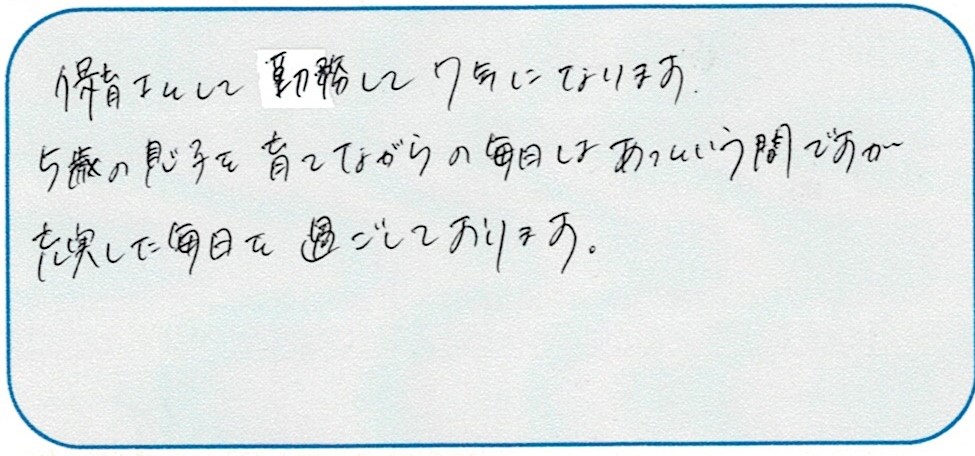 保育士として勤務して7年になります.
5歳の息子を育てながらの毎日はあっという間ですが
充実した毎日を過ごしております。